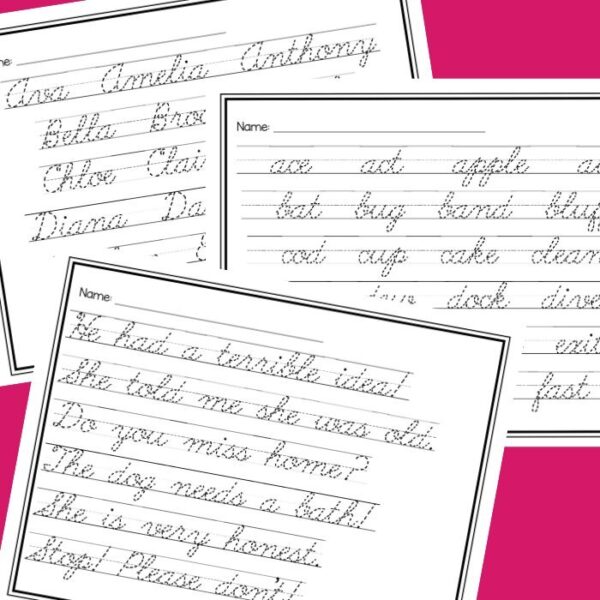 Ava Amelia Anthony
Bella
Chloe
Diana
Name:
ace act apple
bat bug band
cod cup cake
dock
exit
fast
Name:
He had a terrible idea!
She told me she was old.
Do you miss home?
The dog needs a bath!
She is very honest.
Stop! Please don't!